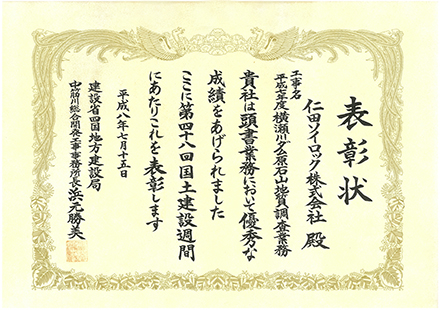 表彰状
仁田ソイロック株式会社 殿
工事名
平成七年度横瀬川ダム原石山地質調査業務
貴社は頭書業務において優秀な
成績をあげられました
ここに第四十八回国土建設週間
にあたりこれを表彰します
平成八年七月十五日
建設省四国地方建設局
中筋川総合開発工事事務所長 浜元勝美